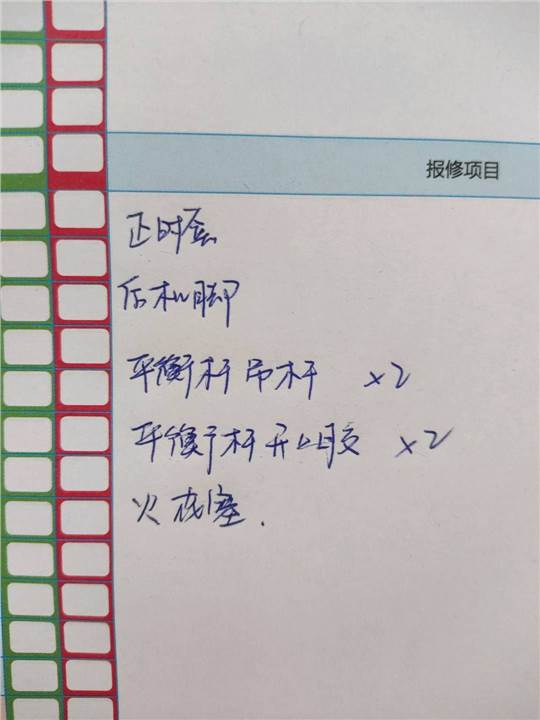 报修项目
正时套
后机脚
平衡杆吊杆 ×2
平衡杆开口胶 ×2
火花塞.